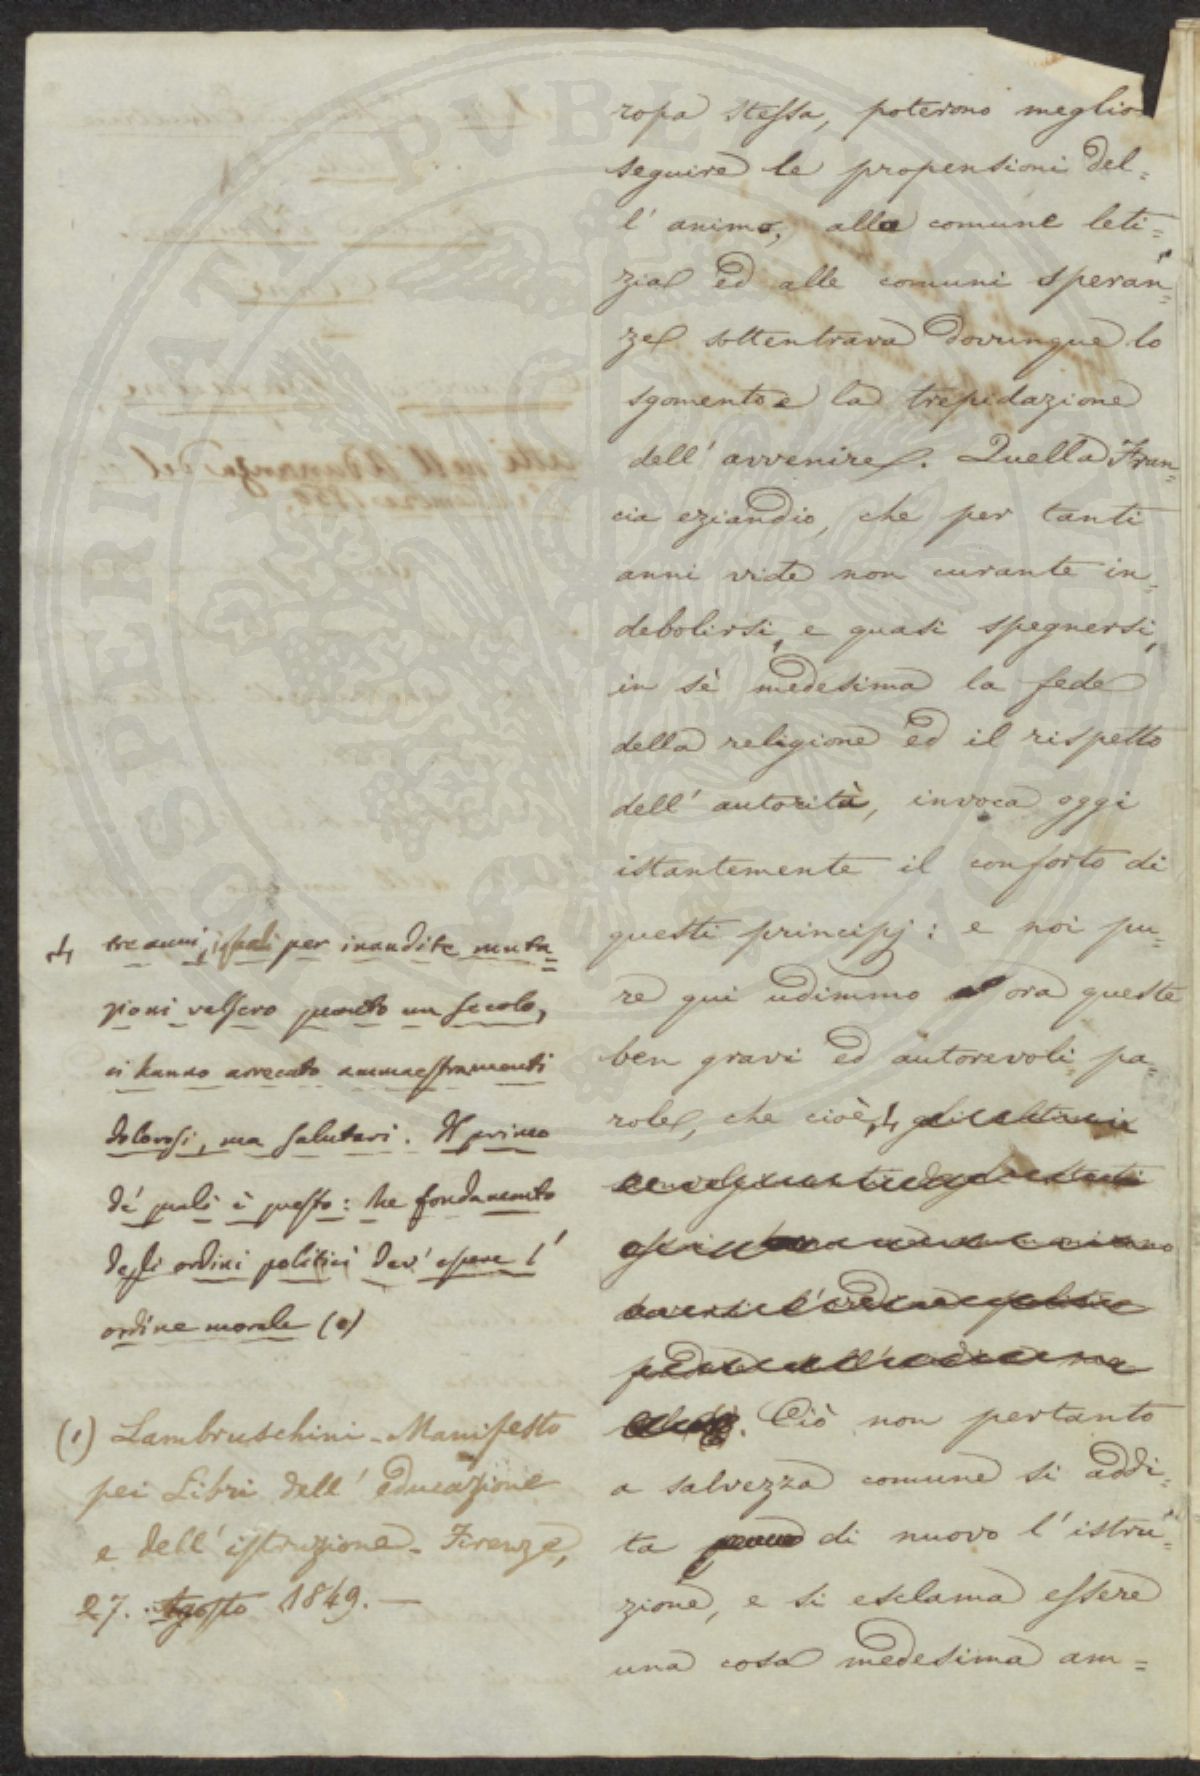 ropa stessa, poterono meglio
seguire le propensioni del=
l' animo, alla comune leti=
zia ed alle comuni speran=
ze sottentrava dovunque lo
sgomento e la trepidazione
dell' avvenire. Quella Fran=
cia eziandio, che per tanti
anni vide non curante in=
debolirsi, e quasi spegnersi,
in sè medesima la fede
della religione ed il rispetto
dell' autorità, invoca oggi
istantemente il conforto di
questi principj: e noi pu=
re qui udimmo ora queste
ben gravi ed autorevoli pa=
role, che cioè,
Ciò non pertanto
a salvezza comune si addi=
ta di nuovo l' istru=
zione, e si esclama essere
una cosa medesima am=
tre anni, i quali per inaudite muta=
zioni valsero quanto un secolo,
ci hanno arrecato ammaestramenti
dolorosi, ma salutari. Il primo
de' quali è questo: che fondamento
degli ordini politici dev' essere l'
ordine morale (1)
(1) Lambruschini - Manifesto
pei Libri dell' educazione
e dell' istruzione. Firenze,
27. Agosto 1849. —